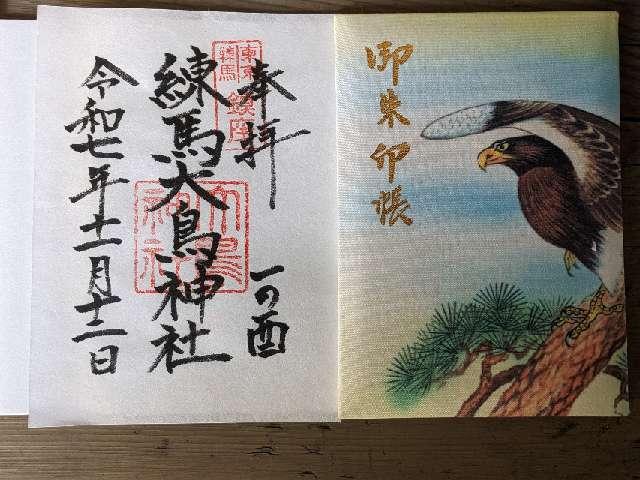 御朱印帳
奉拝
一の酉
東京
練馬
鎮座
練馬大鳥神社
大鳥
神社
令和七年十一月十二日